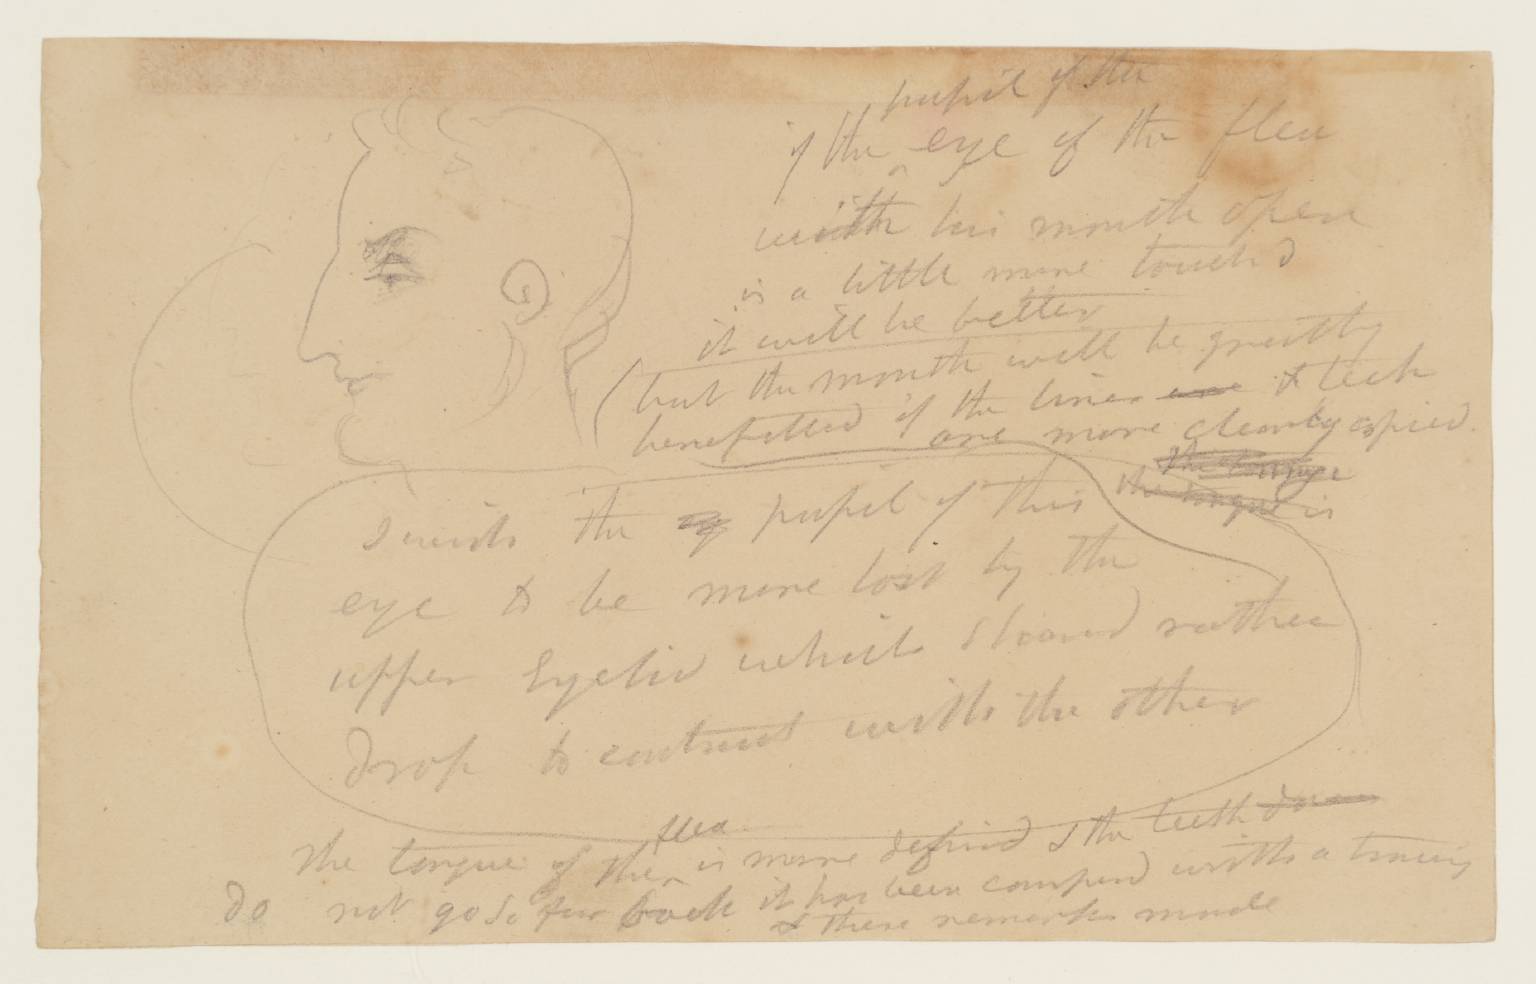 pupil of the
if the eye of the flea
with his mouth open
is a little more touch'd
it will be better
(but the mouth will be greatly
benefitted if the lines are & teeth
are more clearly copied.
the tongue
the tongue is
I wish the pupil of this
eye to be more lost by the
upper Eyelid which should rather
drop to contrast with the other
flea
The tongue of the is more defined & the teeth do
do not go so far back it has been compared with a tracing
& these remarks made